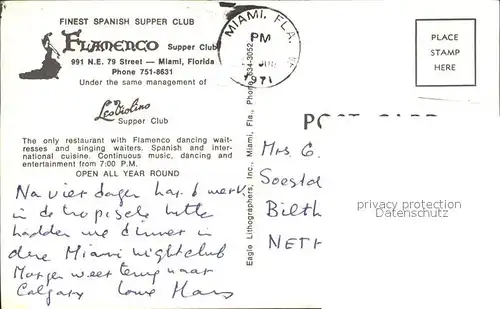 FINEST SPANISH SUPPER CLUB
FLAMENCO Supper Club
991 N.E. 79 Street — Miami, Florida
Phone 751-8631
Under the same management of
Les Violins
Supper Club
The only restaurant with Flamenco dancing wait-
resses and singing waiters. Spanish and inter-
national cuisine. Continuous music, dancing and
entertainment from 7:00 P.M.
OPEN ALL YEAR ROUND
Na vier dagen hard
in de tropische hitte
hadden we dinner in
deze Miami nightclub
Morgen weer terug naar
Calgary Hans
MIAMI, FLA.
PM
1971
Eagle Lithographers, Inc., Miami, Fla., 634-3052
PLACE
STAMP
HERE
POST CARD
Mrs G.
Soestd
Bilth
NETH
privacy protection
Datenschutz